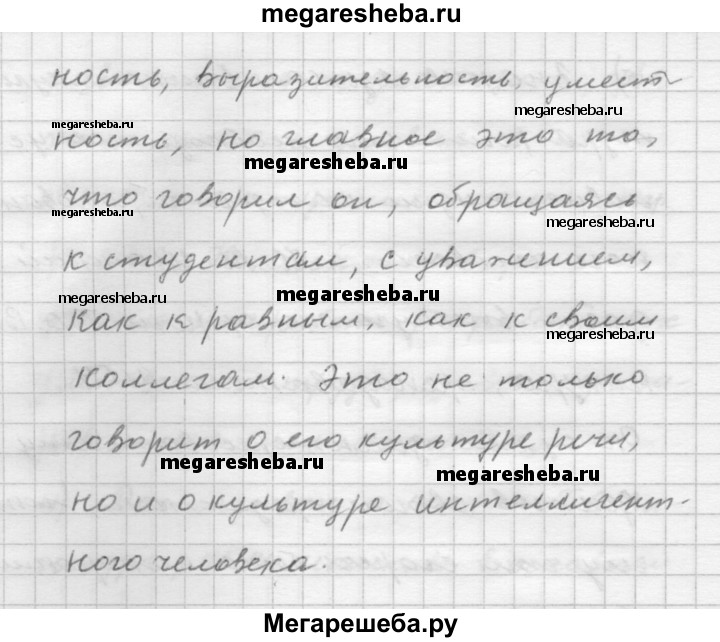 megaresheba.ru
ность, выразительность умест-
megaresheba.ru
megaresheba.ru
ность, но главное это то,
megaresheba.ru
что говорил он, обращаясь
megaresheba.ru
megaresheba.ru
к студентам, с уважением,
megaresheba.ru
megaresheba.ru
как к равным, как к своим
megaresheba.ru
коллегам. Это не только
говорит о его культуре речи,
megaresheba.ru
megaresheba.ru
но и о культуре интеллигент-
ного человека.
Мегарешеба.ру